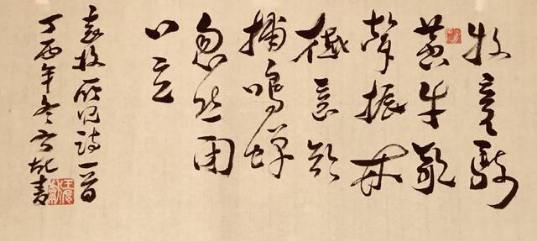 牧童騎
黄牛歌
聲振林
樾意欲
捕鳴蟬
忽然闭
口立
袁枚所见詩一首
丁酉年冬